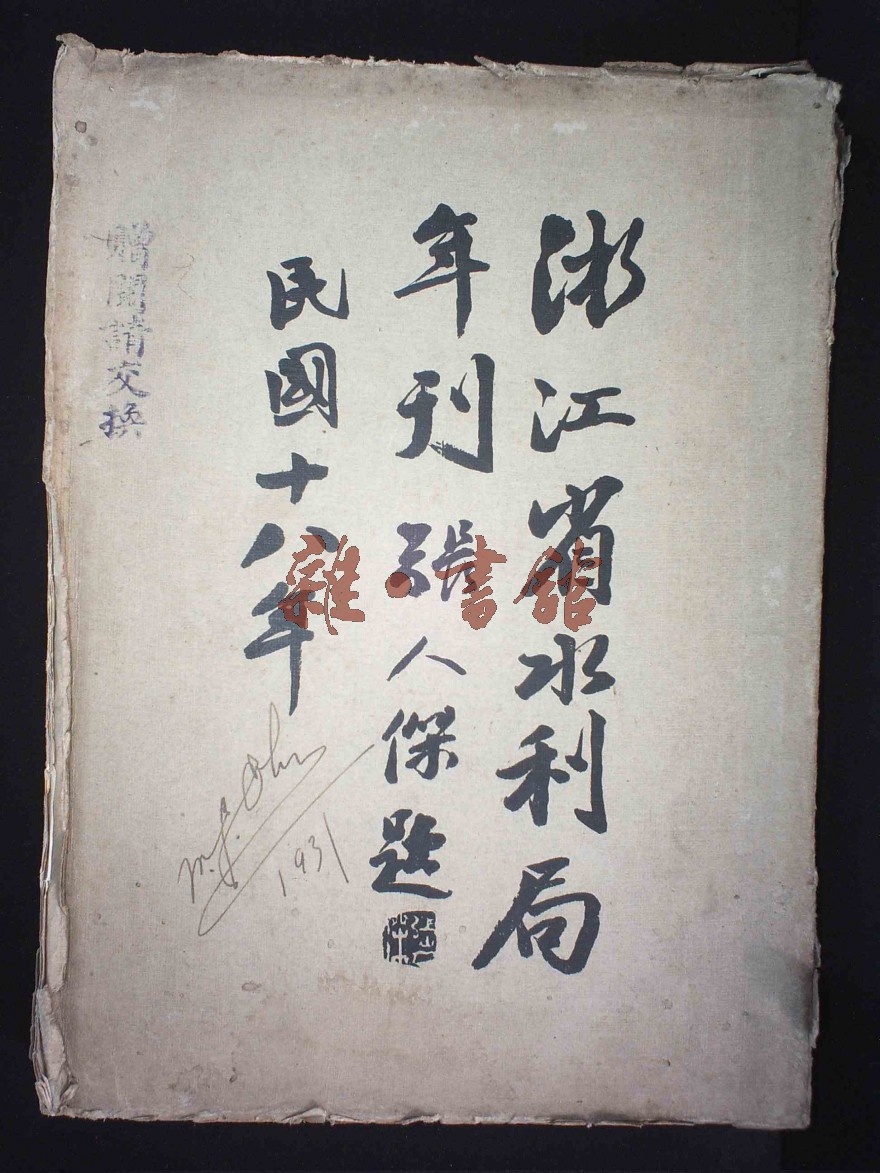 浙江省水利局
年刊 張人傑題
民國十八年
贈閱請交換
雜·書館
1931